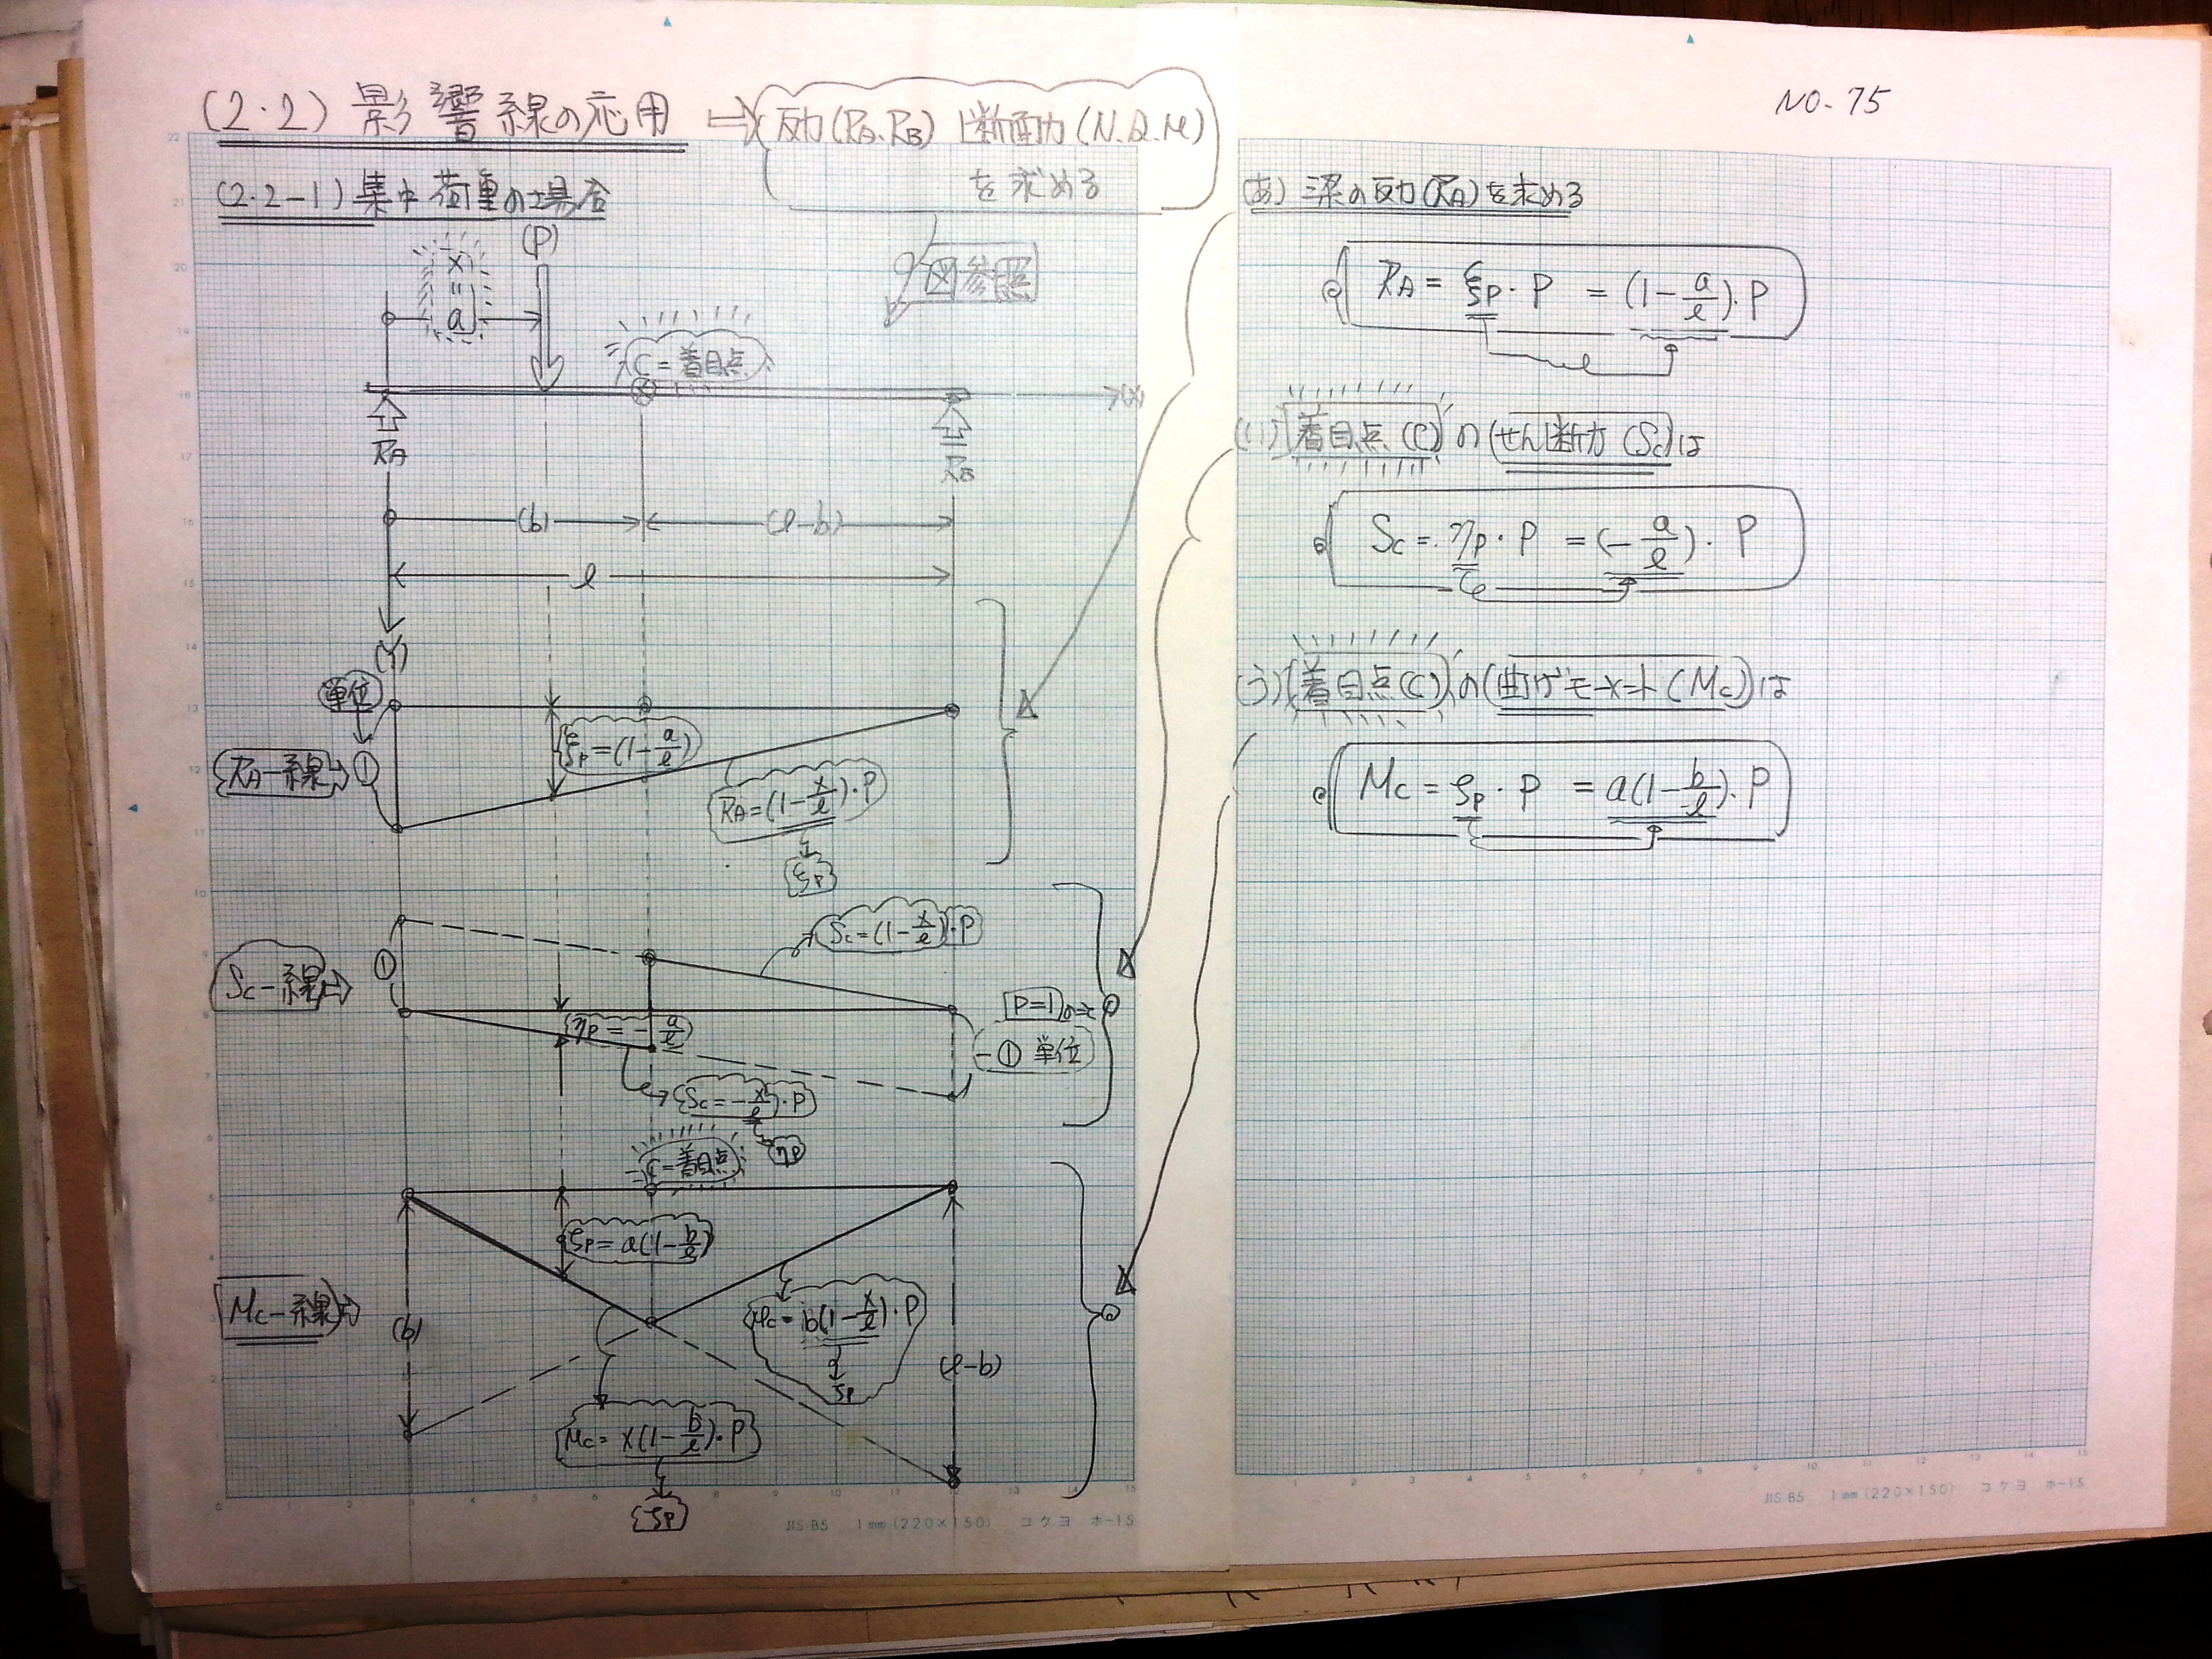 (2.2) 影響線の応用 ⇒ 反力(RA.RB) 断面力(N.Q.M)
を求める
NO-75
(2.2-1) 集中荷重の場合
図参照
(P)
x
=
a
C=着目点
(X)
RA
RB
(b)
(ℓ-b)
ℓ
(Y)
単位
①
RA-線⇒
ξP=(1-a/ℓ)
RA=(1-x/ℓ)・P
ξP
Sc-線⇒
①
Sc=(1-x/ℓ)・P
ηP=-a/ℓ
P=1のとき
-① 単位
Sc=-x/ℓ・P
ηP
C=着目点
Mc-線⇒
ζP=a(1-b/ℓ)
(b)
Mc=b(1-x/ℓ)・P
ζP
(ℓ-b)
Mc=x(1-b/ℓ)・P
ζP
JIS-B5 1mm(220×150) コクヨ ホ-15
(あ) 梁の反力(RA)を求める
RA=ξP・P =(1-a/ℓ)・P
(い) 着目点(C)の(せん断力(Sc))は
Sc=ηP・P =(-a/ℓ)・P
(う) 着目点(C)の(曲げモーメント(Mc))は
Mc=ζP・P =a(1-b/ℓ)・P
JIS-B5 1mm(220×150) コクヨ ホ-15